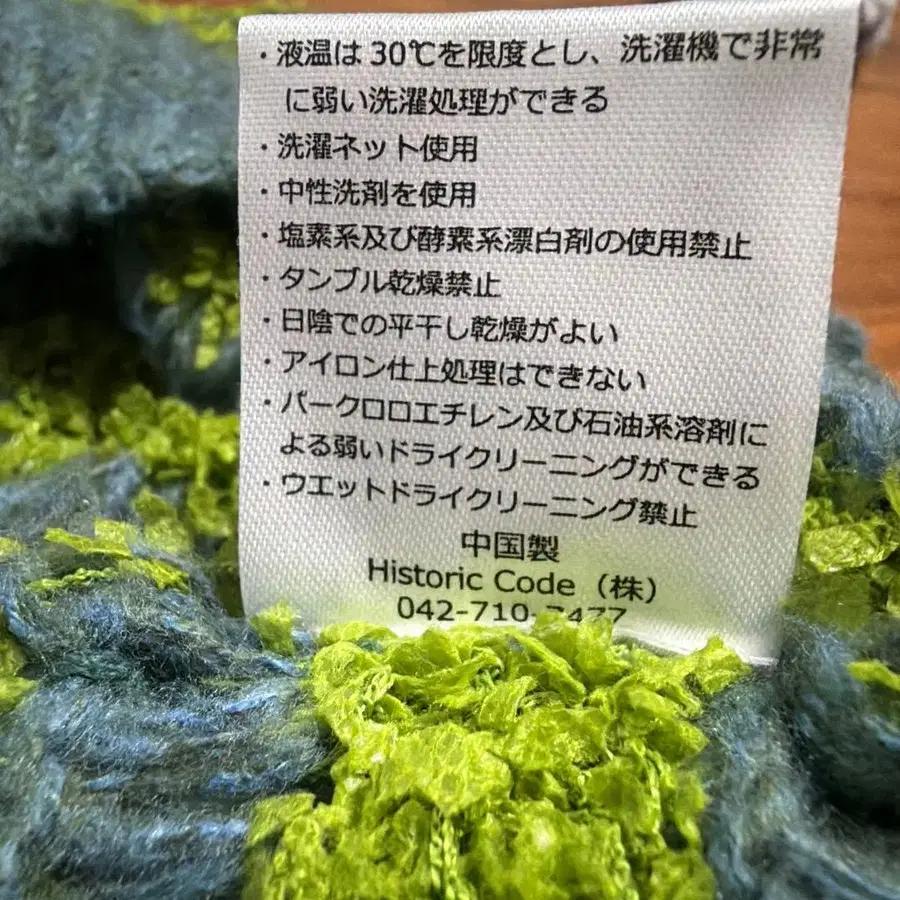 ・液温は30℃を限度とし、洗濯機で非常
に弱い洗濯処理ができる
・洗濯ネット使用
・中性洗剤を使用
・塩素系及び酵素系漂白剤の使用禁止
・タンブル乾燥禁止
・日陰での平干し乾燥がよい
・アイロン仕上処理はできない
・パークロロエチレン及び石油系溶剤に
よる弱いドライクリーニングができる
・ウエットドライクリーニング禁止
中国製
Historic Code（株）
042-710-